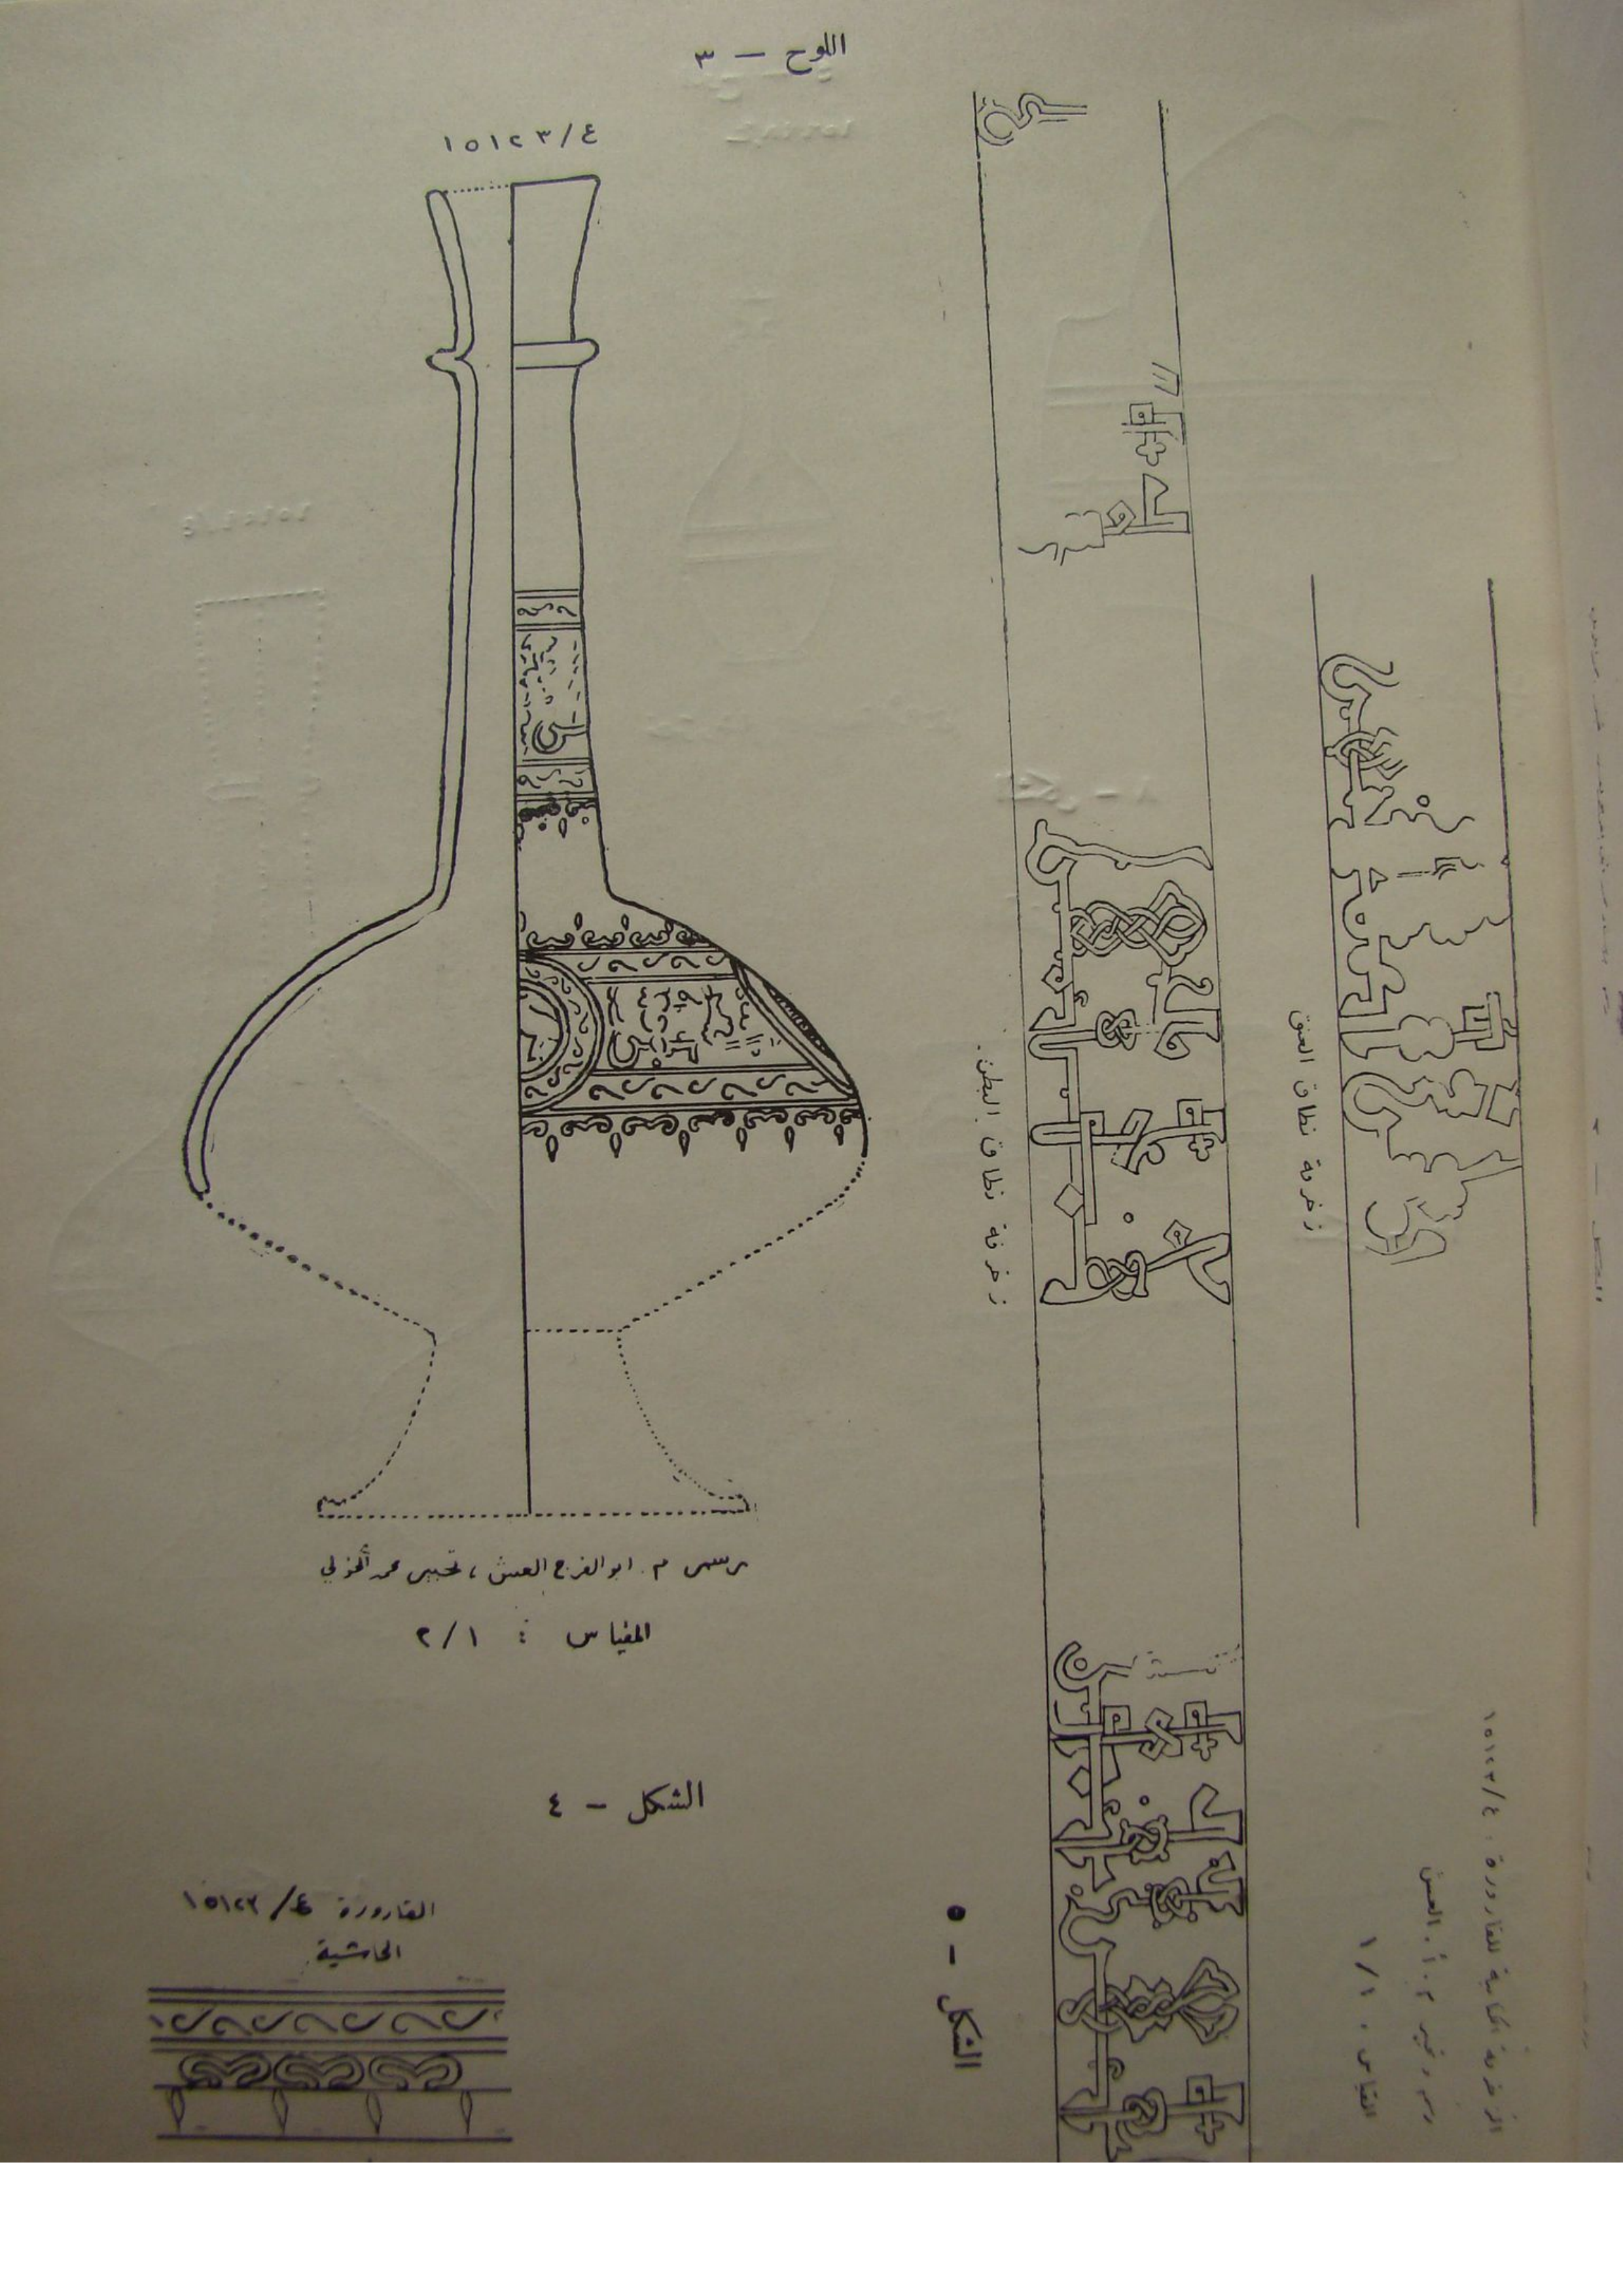 اللوح – ٣
١٥١٢٣/٤
رسم م. ابو الفرج العش ، تحبير محمد الخولي
المقياس : ٢/١
الشكل – ٤
القارورة ١٥١٢٣/٤
الحاشية
زخرفة نطاق البطن.
زخرفة نطاق العنق
الشكل – ٥
الزخرفة الكتابية للقارورة ١٥١٢٣/٤
رسم وتحبير م. أ. العش
المقياس ١/١